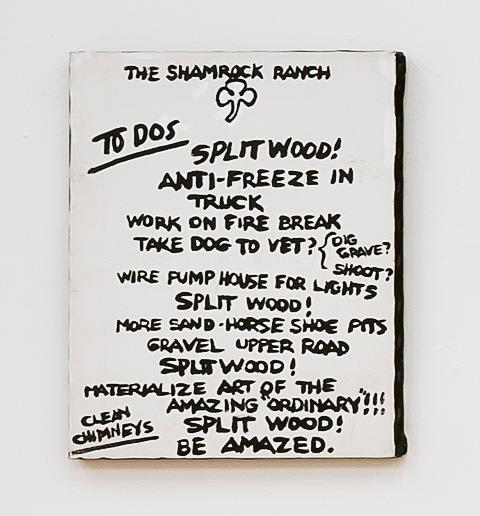 THE SHAMROCK RANCH
TO DOS
SPLIT WOOD!
ANTI-FREEZE IN
TRUCK
WORK ON FIRE BREAK
TAKE DOG TO VET? { DIG
GRAVE?
SHOOT?
WIRE PUMP HOUSE FOR LIGHTS
SPLIT WOOD!
MORE SAND-HORSE SHOE PITS
GRAVEL UPPER ROAD
SPLIT WOOD!
MATERIALIZE ART OF THE
AMAZING "ORDINARY"!!!
CLEAN
CHIMNEYS
SPLIT WOOD!
BE AMAZED.